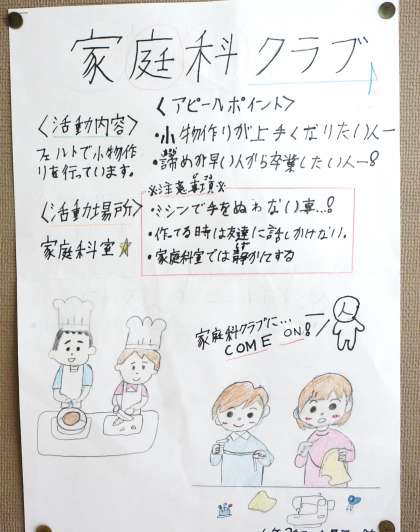 家庭科クラブ
〈活動内容〉
フェルトで小物作
りを行っています。
〈活動場所〉
家庭科室
〈アピールポイント〉
・小物作りが上手くなりたい人ー
・諦めが早い人から卒業したい人ー!
※注意事項※
・ミシンで手をぬわない事…!
・作ってる時は友達に話しかけない。
・家庭科室では静かにする
家庭科クラブに…
COME ON!